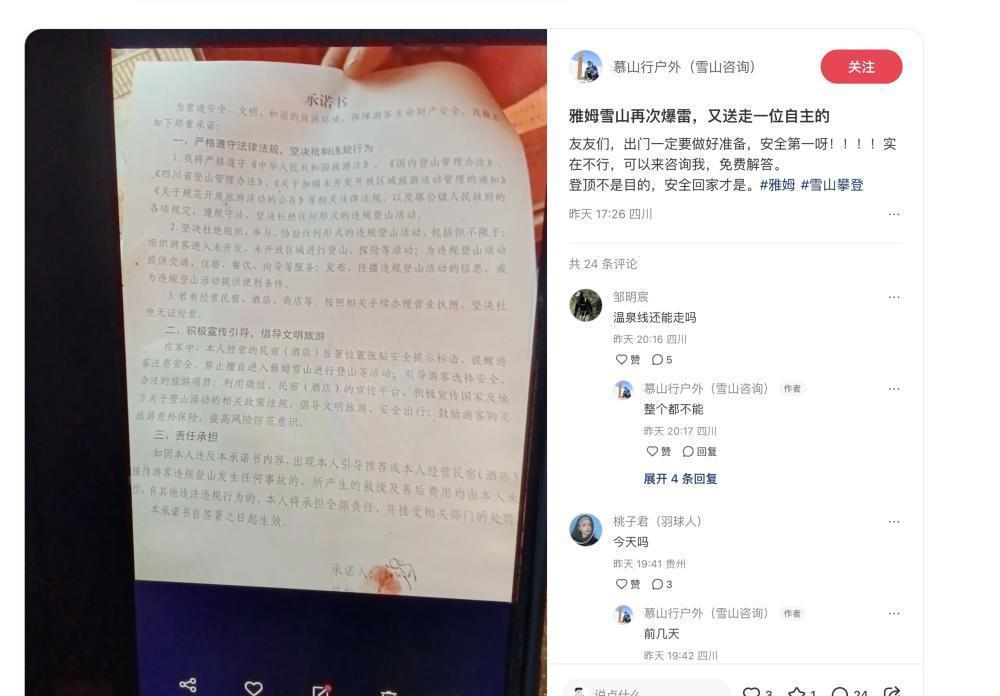 承诺书
为营造安全、文明、和谐的旅游环境，保障游客生命财产安全，我做出
如下郑重承诺：
一、严格遵守法律法规，坚决抵制违规行为
1.我将严格遵守《中华人民共和国旅游法》、《国内登山管理办法》、
《四川省登山管理办法》、《关于加强未开发开放区域旅游活动管理的通知》
《关于规范开展旅游活动的公告》等相关法律法规，以及塔公镇人民政府的
各项规定，遵规守法，坚决杜绝任何形式的违规登山活动。
2.坚决杜绝组织、参与、协助任何形式的违规登山活动，包括但不限于：
组织游客进入未开发、未开放区域进行登山、探险等活动；为违规登山活动
提供交通、住宿、餐饮、向导等服务；发布、传播违规登山活动的信息，或
为违规登山活动提供便利条件。
3.若有经营民宿、酒店、商店等，按照相关手续办理营业执照，坚决杜
绝无证经营。
二、积极宣传引导，倡导文明旅游
在家中、本人经营的民宿（酒店）显著位置张贴安全提示标语，提醒游
客注意安全，禁止擅自进入雅姆雪山进行登山等活动；引导游客选择安全、
合法的旅游项目；利用微信、民宿（酒店）的宣传平台，积极宣传国家及地
方关于登山活动的相关政策法规，倡导文明旅游、安全出行；鼓励游客购买
旅游意外保险，提高风险防范意识。
三、责任承担
如因本人违反本承诺书内容，出现本人引导推荐或本人经营民宿（酒店）
接待游客违规登山发生任何事故的，所产生的救援及善后费用均由本人承
担，有其他违法违规行为的，本人将承担全部责任，并接受相关部门的处罚
本承诺书自签署之日起生效。
承诺人
慕山行户外（雪山咨询）
关注
雅姆雪山再次爆雷，又送走一位自主的
友友们，出门一定要做好准备，安全第一呀！！！！实
在不行，可以来咨询我，免费解答。
登顶不是目的，安全回家才是。#雅姆 #雪山攀登
昨天 17:26 四川
共 24 条评论
邹明宸
温泉线还能走吗
昨天 20:16 四川
赞 5
慕山行户外（雪山咨询） 作者
整个都不能
昨天 20:17 四川
赞 回复
展开 4 条回复
桃子君（羽球人）
今天吗
昨天 19:41 贵州
赞 3
慕山行户外（雪山咨询） 作者
前几天
昨天 19:42 四川
说点什么
3 1 24